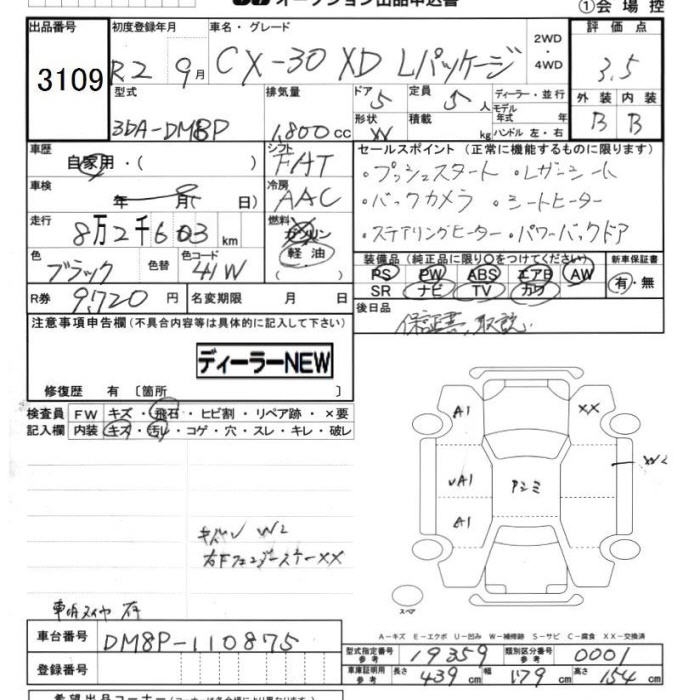 オークション出品申込書
①会場控
出品番号 初度登録年月 車名・グレード 2WD ・4WD 評価点
3109 R2 9月 CX-30 XD Lパッケージ 3.5
型式 排気量 ドア 定員 ディーラー・並行 外装 内装
3DA-DM8P 1,800cc 5 5人 モデル年式 年 B B
形状 W 積載 kg ハンドル 左・右
車歴 自家用・( ) シフト FAT セールスポイント (正常に機能するものに限ります)
・プッシュスタート ・レザーシート
車検 年 月( 日) 冷房 AAC ・バックカメラ ・シートヒーター
走行 8万2千603km 燃料 ガソリン 軽油 ( ) ・ステアリングヒーター ・パワーバックドア
色 ブラック 色替 色コード 41W 装備品 (純正品に限り○をつけてください) 新車保証書
PS PW ABS エアB AW 有・無
SR ナビ TV カワ
R券 9,720円 名変期限 月 日 後日品
保証書、取説
注意事項申告欄(不具合内容等は具体的に記入して下さい)
ディーラーNEW
修復歴 有 〔箇所 〕
検査員 FW キズ・飛石・ヒビ割・リペア跡・×要
記入欄 内装 キズ・汚レ・コゲ・穴・スレ・キレ・破レ
A1 XX
W2
A1
A1
W2
XX
スペア
A-キズ E-エクボ U-凹み W-補修跡 S-サビ C-腐食 XX-交換済
車台番号 DM8P-110875
型式指定番号 参考 19359 類別区分番号 参考 0001
登録番号
車庫証明用 参考 長さ 439cm 幅 179cm 高さ 154cm
希望出品コーナー